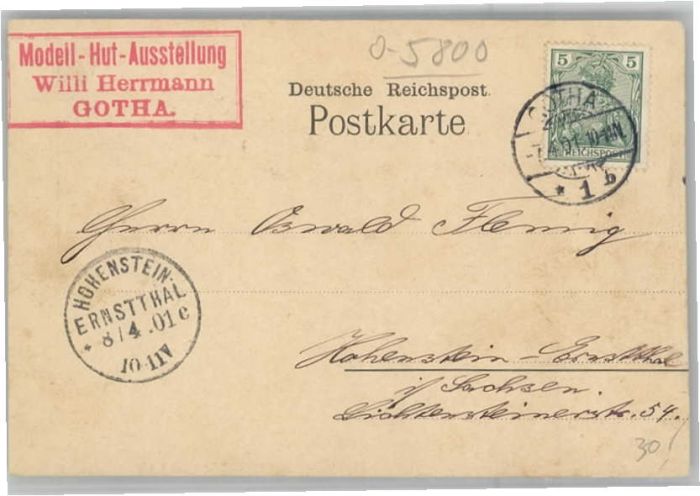 Modell-Hut-Ausstellung
Willi Herrmann
GOTHA.
0-5800
Deutsche Reichspost.
Postkarte
5 5
REICHSPOST
GOTHA
10-11V
* 1 b
Herrn Oswald Flemig
HOHENSTEIN-
ERNSTTHAL
* 8/4.01 c
10-11V
Hohenstein-Ernstthal
i/ Sachsen.
Lichtensteinerstr. 54.
30